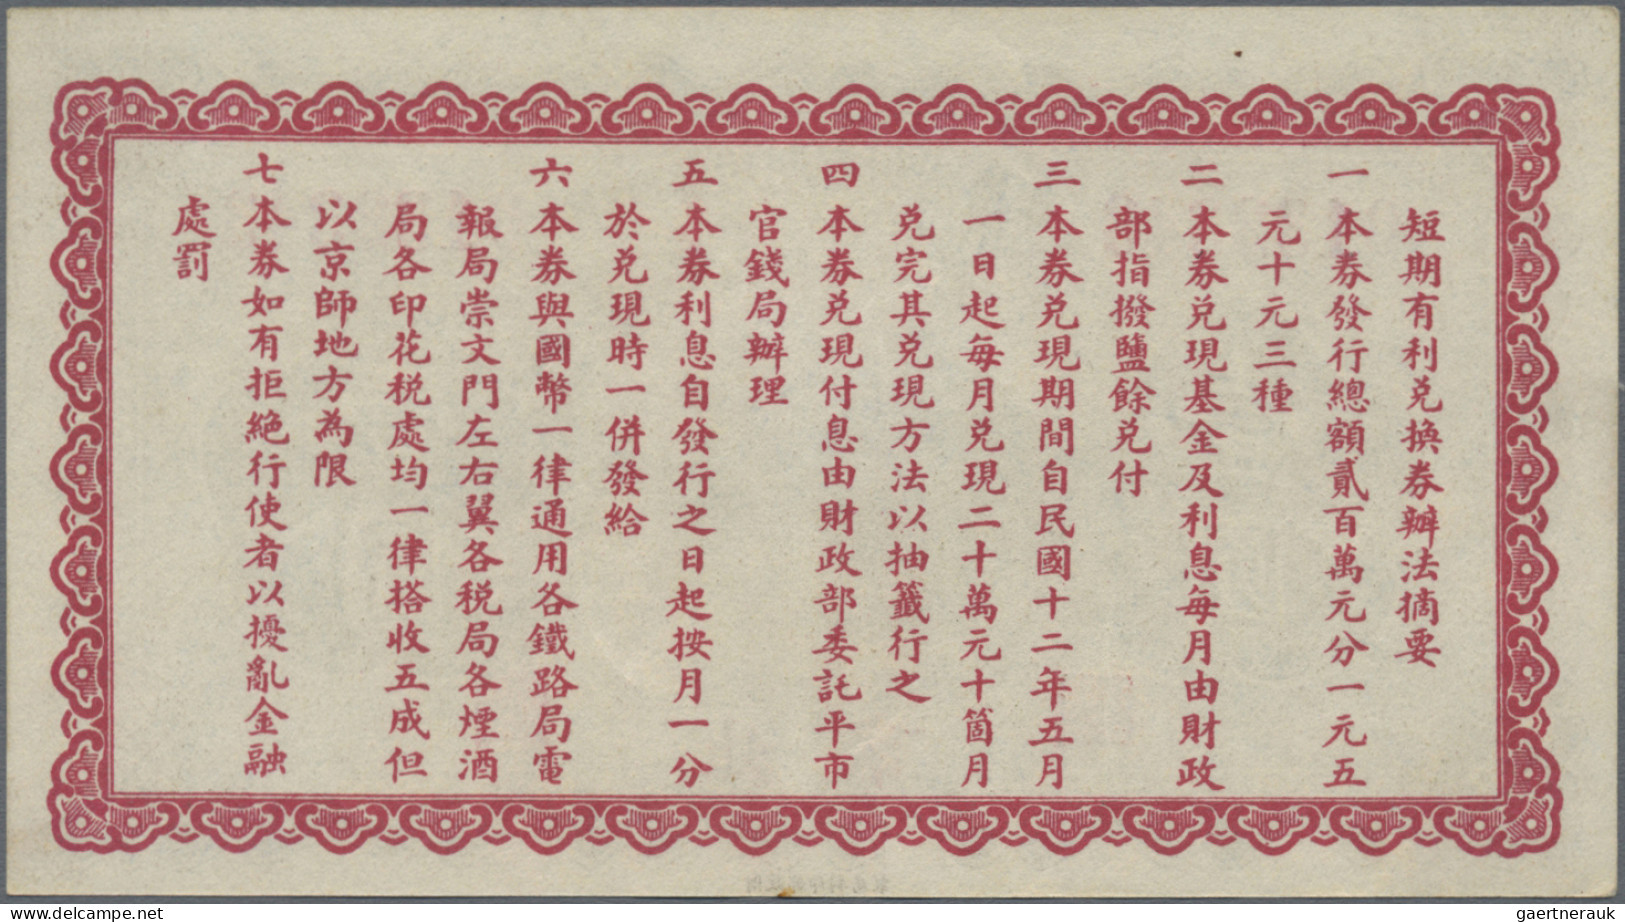 短期有利兑換券辦法摘要
一 本券發行總額貳百萬元分一元五
元十元三種
二 本券兑現基金及利息每月由財政
部指撥鹽餘兑付
三 本券兑現期間自民國十二年五月
一日起每月兑現二十萬元十箇月
兑完其兑現方法以抽籤行之
四 本券兑現付息由財政部委託平市
官錢局辦理
五 本券利息自發行之日起按月一分
於兑現時一併發給
六 本券與國幣一律通用各鐵路局電
報局崇文門左右翼各税局各煙酒
局各印花税處均一律搭收五成但
以京師地方為限
七 本券如有拒絶行使者以擾亂金融
處罰
HipPostcard.com
gaertnerauk